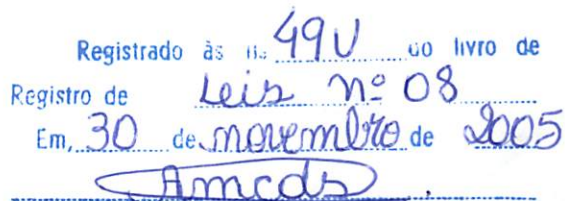 Registrado às fls 49V do livro de
Registro de Leis nº 08
Em, 30 de novembro de 2005
Amcds